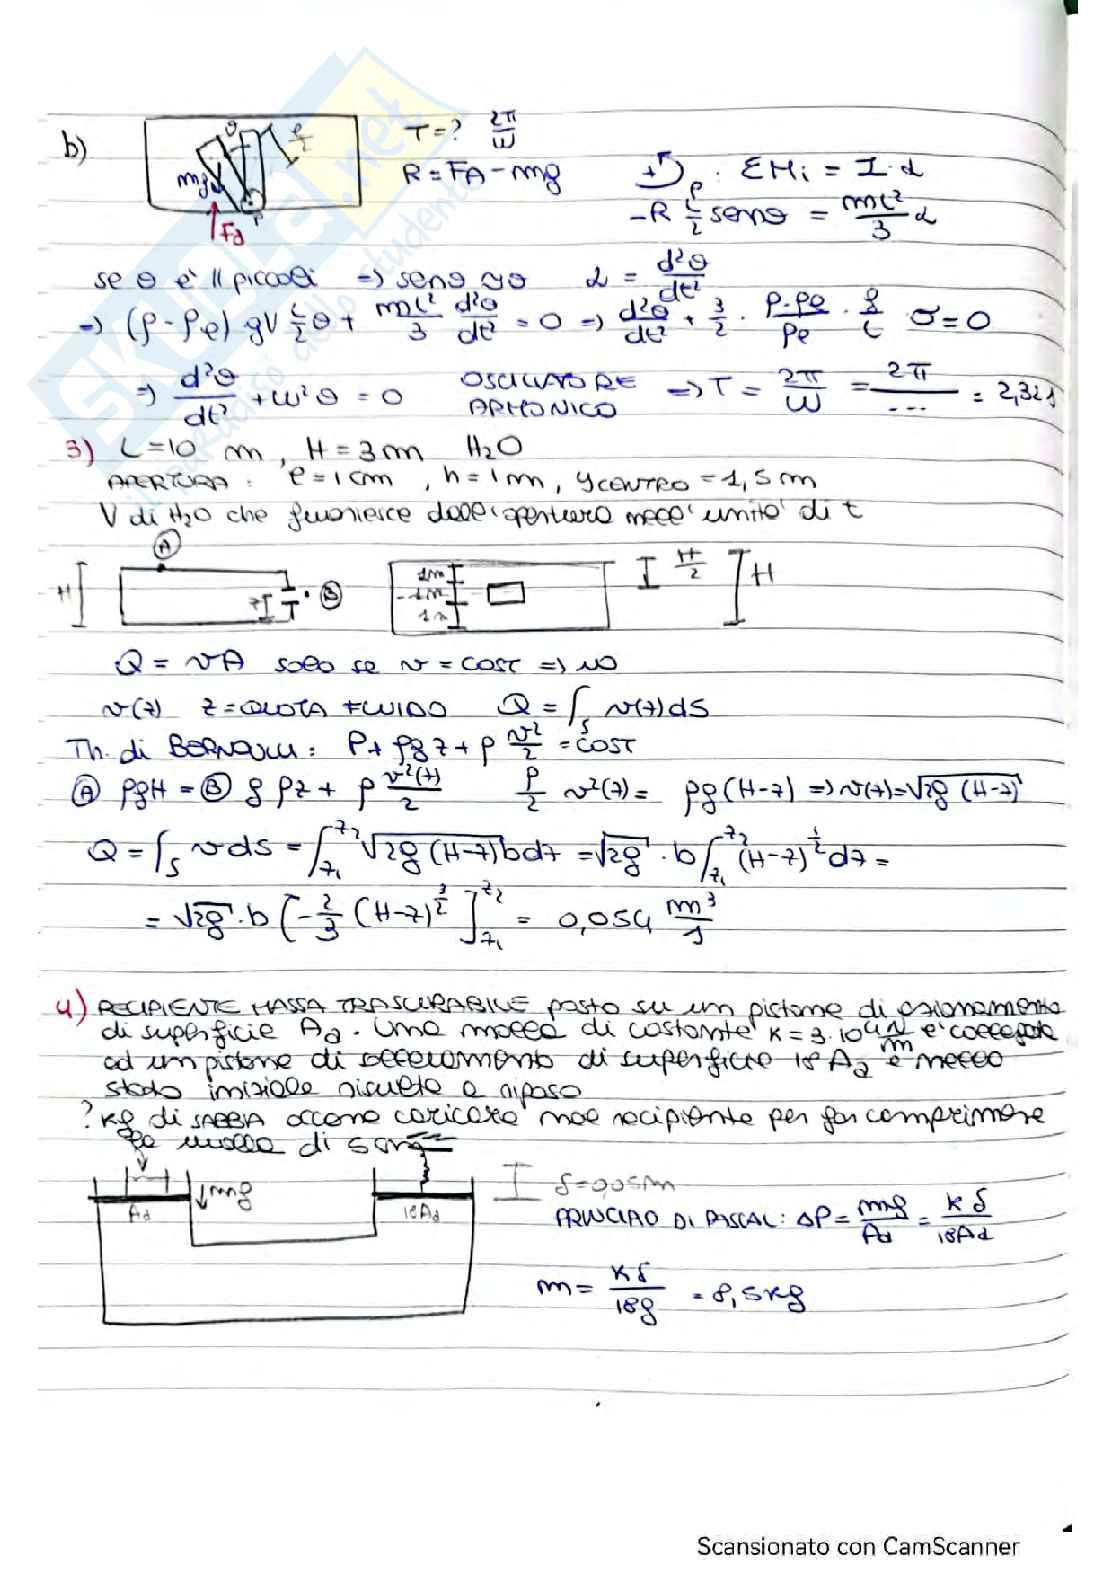 b) T=? 2π/ω
R = FA - mg
+ P : ΣMi = I·α
-R L/2 senθ = mL²/3 α
θ
mg
FA
P
se θ è || piccoli => senθ ~ θ α = d²θ/dt²
=> (ρ-ρe) gV L/2 θ + mL²/3 d²θ/dt² = 0 => d²θ/dt² + 3/2 · ρ-ρe/ρe · g/L θ=0
=> d²θ/dt² + ω²θ = 0 OSCILLATORE ARMONICO => T = 2π/ω = 2π/... = 2,32s
3) L=10 m, H=3m H₂O
APERTURA: e=1cm, h=1m, yCENTRO=1,5m
V di H₂O che fuoriesce dall'apertura nell'unità di t
A
H
z
B
1m
1m
1m
H/2
H
Q = vA solo se v = cost => NO
v(z) z=QUOTA FLUIDO Q = ∫s v(z)dS
Th. di BERNOULLI: P+ρgz+ρ v²/2 = cost
A ρgH = B gρz + ρ v²(z)/2 ρ/2 v²(z) = ρg(H-z) => v(z)=√2g(H-z)
Q = ∫s v ds = ∫z₁^z₂ √2g(H-z) b dz = √2g · b ∫z₁^z₂ (H-z)^1/2 dz =
= √2g · b [-2/3 (H-z)^3/2]z₁^z₂ = 0,054 m³/s
4) RECIPIENTE MASSA TRASCURABILE posto su un pistone di azionamento
di superficie Aa. Una molla di costante K=3·10⁴ N/m è collegata
ad un pistone di sollevamento di superficie 18Aa e nello
stato iniziale risulta a riposo
? kg di SABBIA occorre caricare nel recipiente per far comprimere
la molla di 5cm
mg
Aa
18Aa
δ=0,05m
PRINCIPIO DI PASCAL: ΔP = mg/Aa = Kδ/18Aa
m = Kδ/18g = 8,5kg
SKUOLA.net
il paradiso dello studente
Scansionato con CamScanner